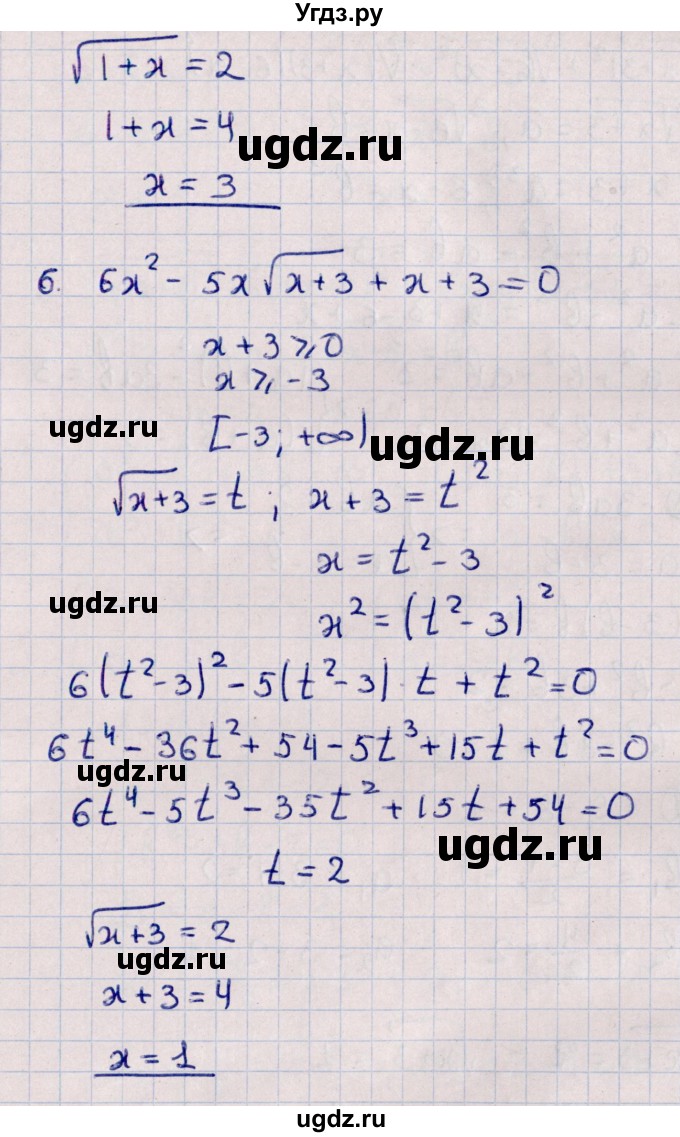 Угдз.ру
√(1+x) = 2
1+x = 4
ugdz.ru
x = 3
6. 6x² - 5x√(x+3) + x + 3 = 0
x + 3 ⩾ 0
x ⩾ -3
ugdz.ru
[-3; +∞)
ugdz.ru
√(x+3) = t ; x + 3 = t²
x = t² - 3
ugdz.ru
x² = (t² - 3)²
6(t²-3)² - 5(t²-3)·t + t² = 0
6t⁴ - 36t² + 54 - 5t³ + 15t + t² = 0
ugdz.ru
6t⁴ - 5t³ - 35t² + 15t + 54 = 0
ugdz.ru
t = 2
√(x+3) = 2
ugdz.ru
x + 3 = 4
x = 1
ugdz.ru